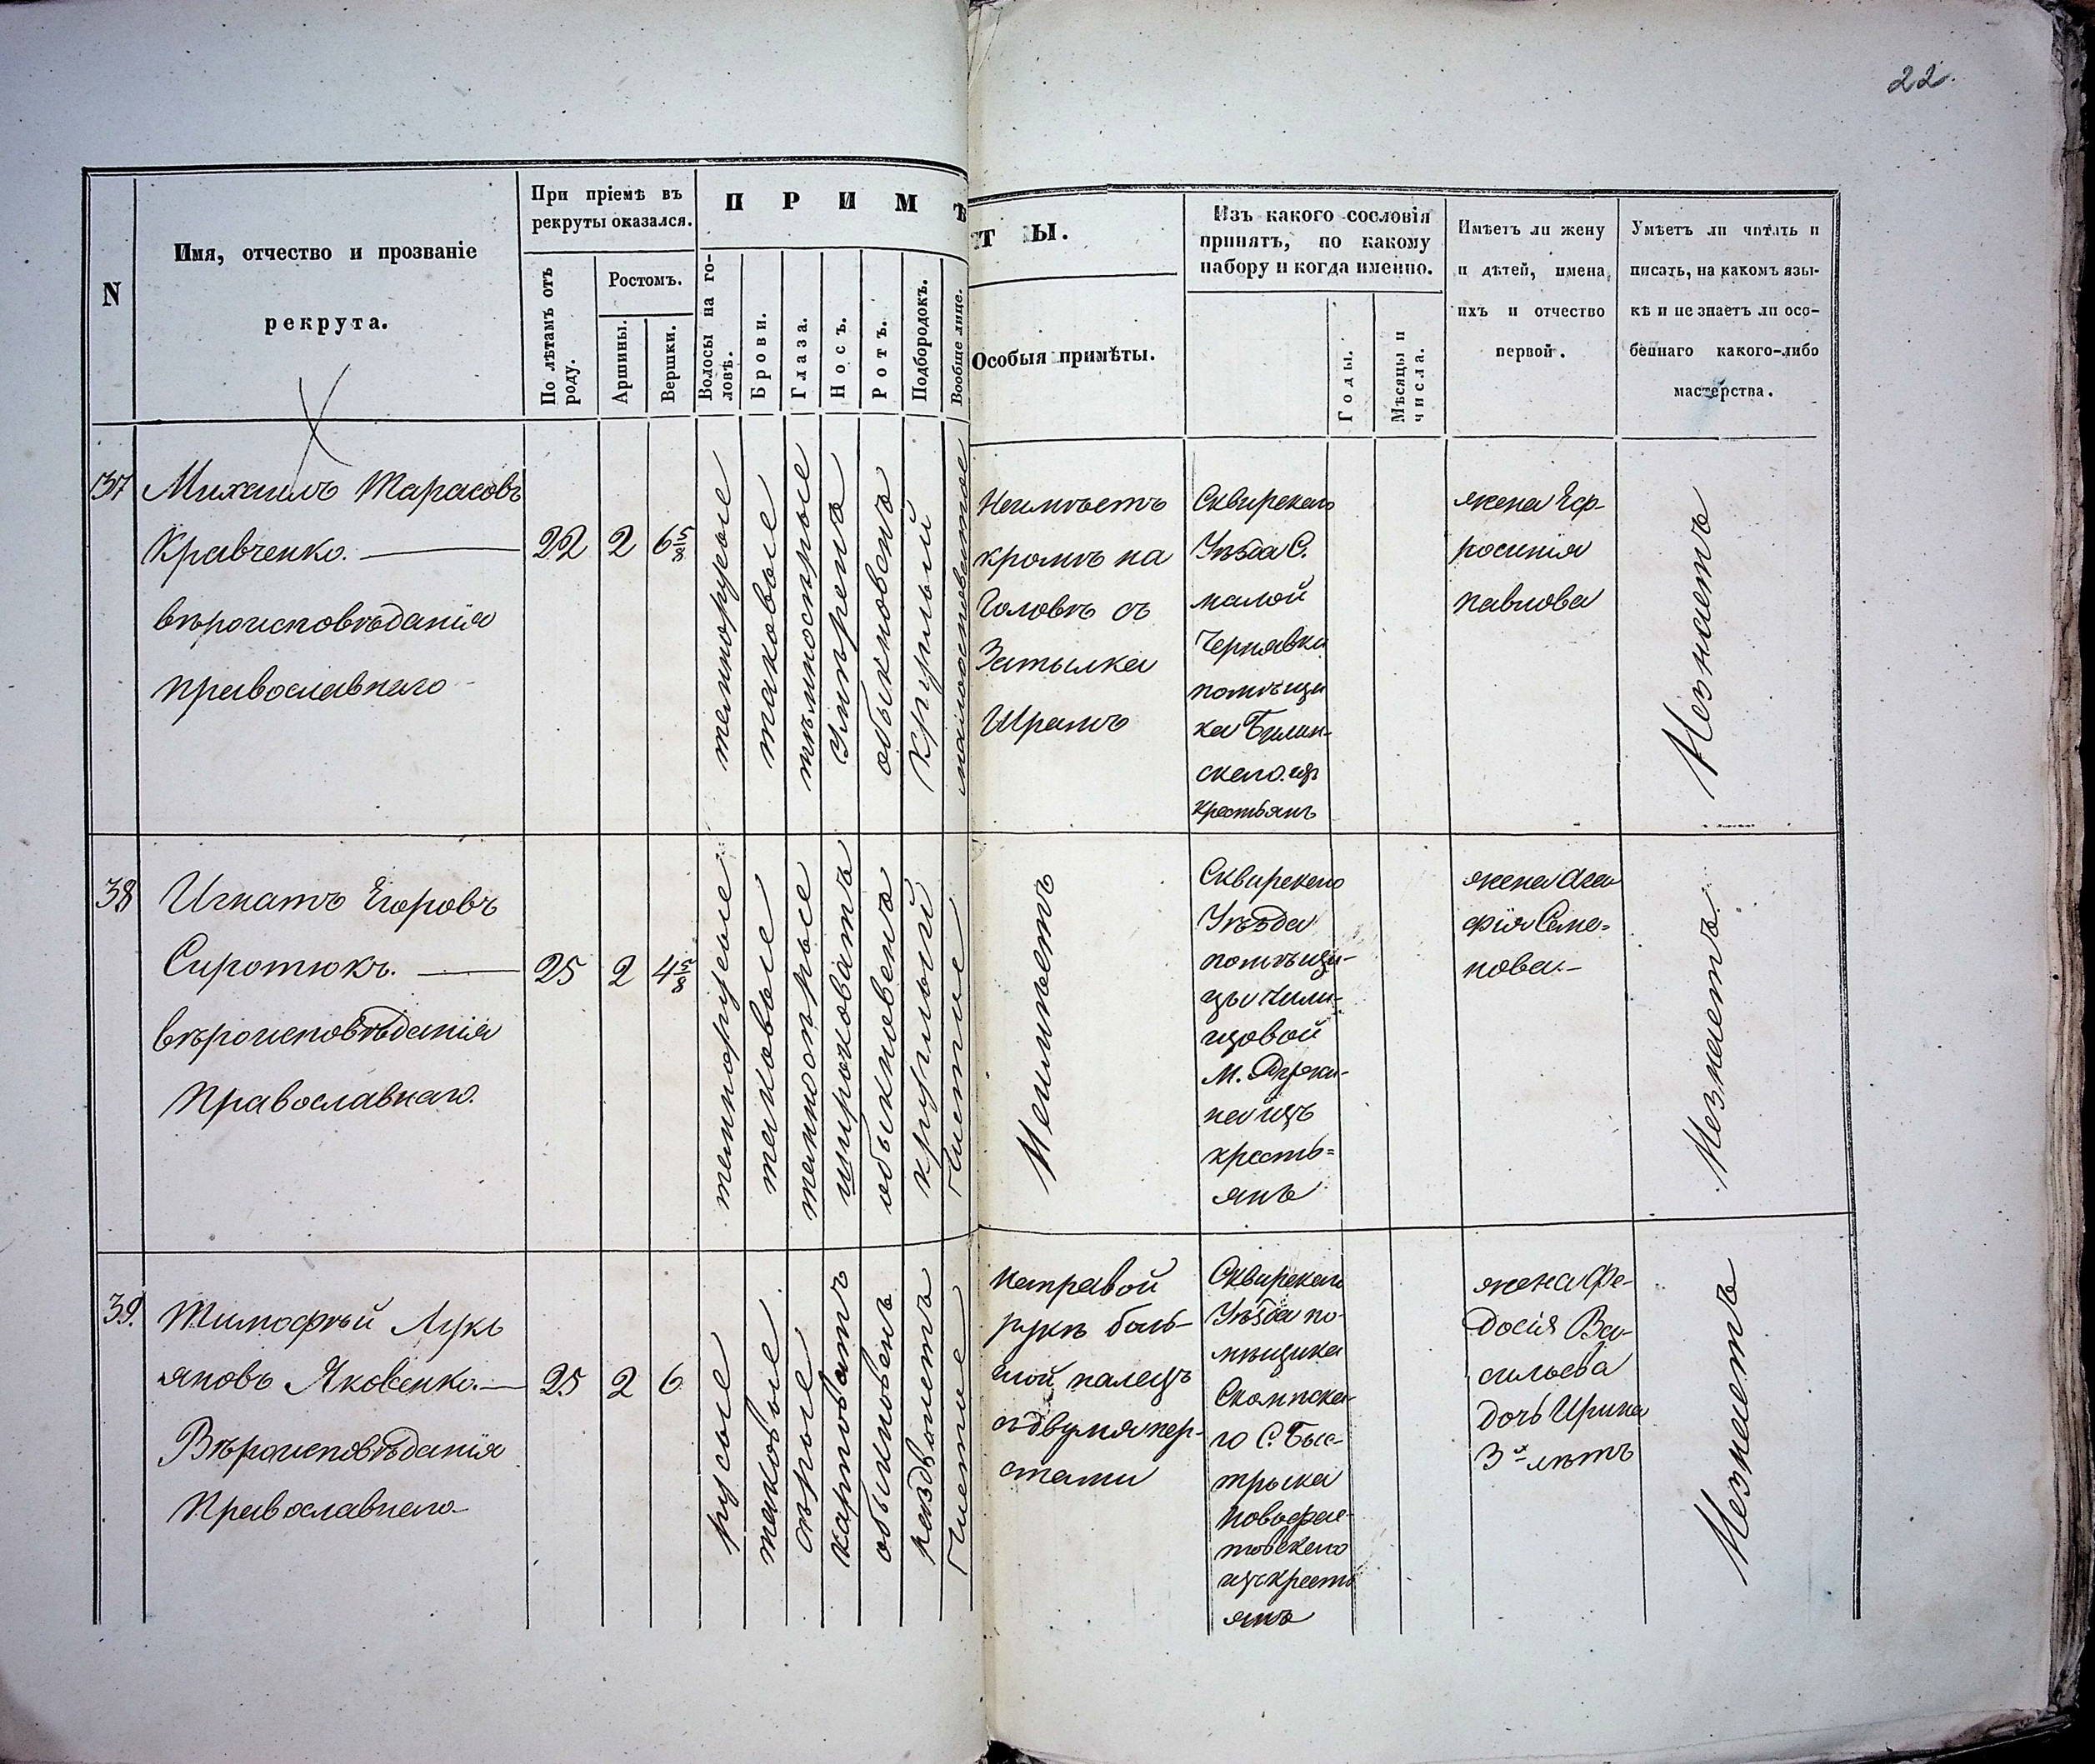 22.
N
Имя, отчество и прозваніе
рекрута.
При пріемѣ въ
рекруты оказался.
По лѣтамъ отъ
роду.
Ростомъ.
Аршины.
Вершки.
ПРИМѢ
ТЫ.
Волосы на го-
ловѣ.
Брови.
Глаза.
Носъ.
Ротъ.
Подбородокъ.
Вообще лице.
Особыя примѣты.
Изъ какого сословія
принятъ, по какому
набору и когда именно.
Годы.
Мѣсяцы и
числа.
Имѣетъ ли жену
и дѣтей, имена
ихъ и отчество
первой.
Умѣетъ ли читать и
писать, на какомъ язы-
кѣ и не знаетъ ли осо-
беннаго какого-либо
мастерства.
37
Михаилъ Тарасовъ
Кравченко.
вѣроисповѣданія
православнаго
22
2
6 5/8
темнорусые
таковые
тѣмносѣрые
умѣренъ
обыкновенъ
Круглый
Неимѣетъ
кромѣ на
Головѣ съ
Затылка
Шрамъ
Сквирскаго
Уѣзда С.
малой
Чернявки
помѣщи
ка Билин-
скаго. из
Крестьянъ
жена Еф-
росинія
павлова
Незнаетъ
38
Игнатъ Егоровъ
Сиротюкъ.
вѣроисповѣданія
Православнаго.
25
2
4 5/8
темнорусые
таковые
темносѣрые
широковатъ
обыкновенъ
круглый
Чистие
Неимѣетъ
Сквирскаго
Уѣзда
помѣщи-
цы
М.
на изъ
кресть=
янъ
жена Ага
фія Семе=
нова.-
Незнаетъ.
39.
Тимофѣй Лукь
яновъ Яковенко.
Вѣроисповѣданія
Православнаго
25
2
6
русые
таковые
сѣрые
карповатъ
обыкновенъ
раздвоенъ
Чистие
направой
рукѣ боль-
шой палецъ
здвумя пер-
стами
Сквирскаго
Уѣзда по-
мѣщика
го С. Быс-
трыка
Новофас-
товскаго
из крестъ
янъ
жена Фе-
досія Ва-
сильева
дочь Ирина
3х лѣтъ
Незнаетъ